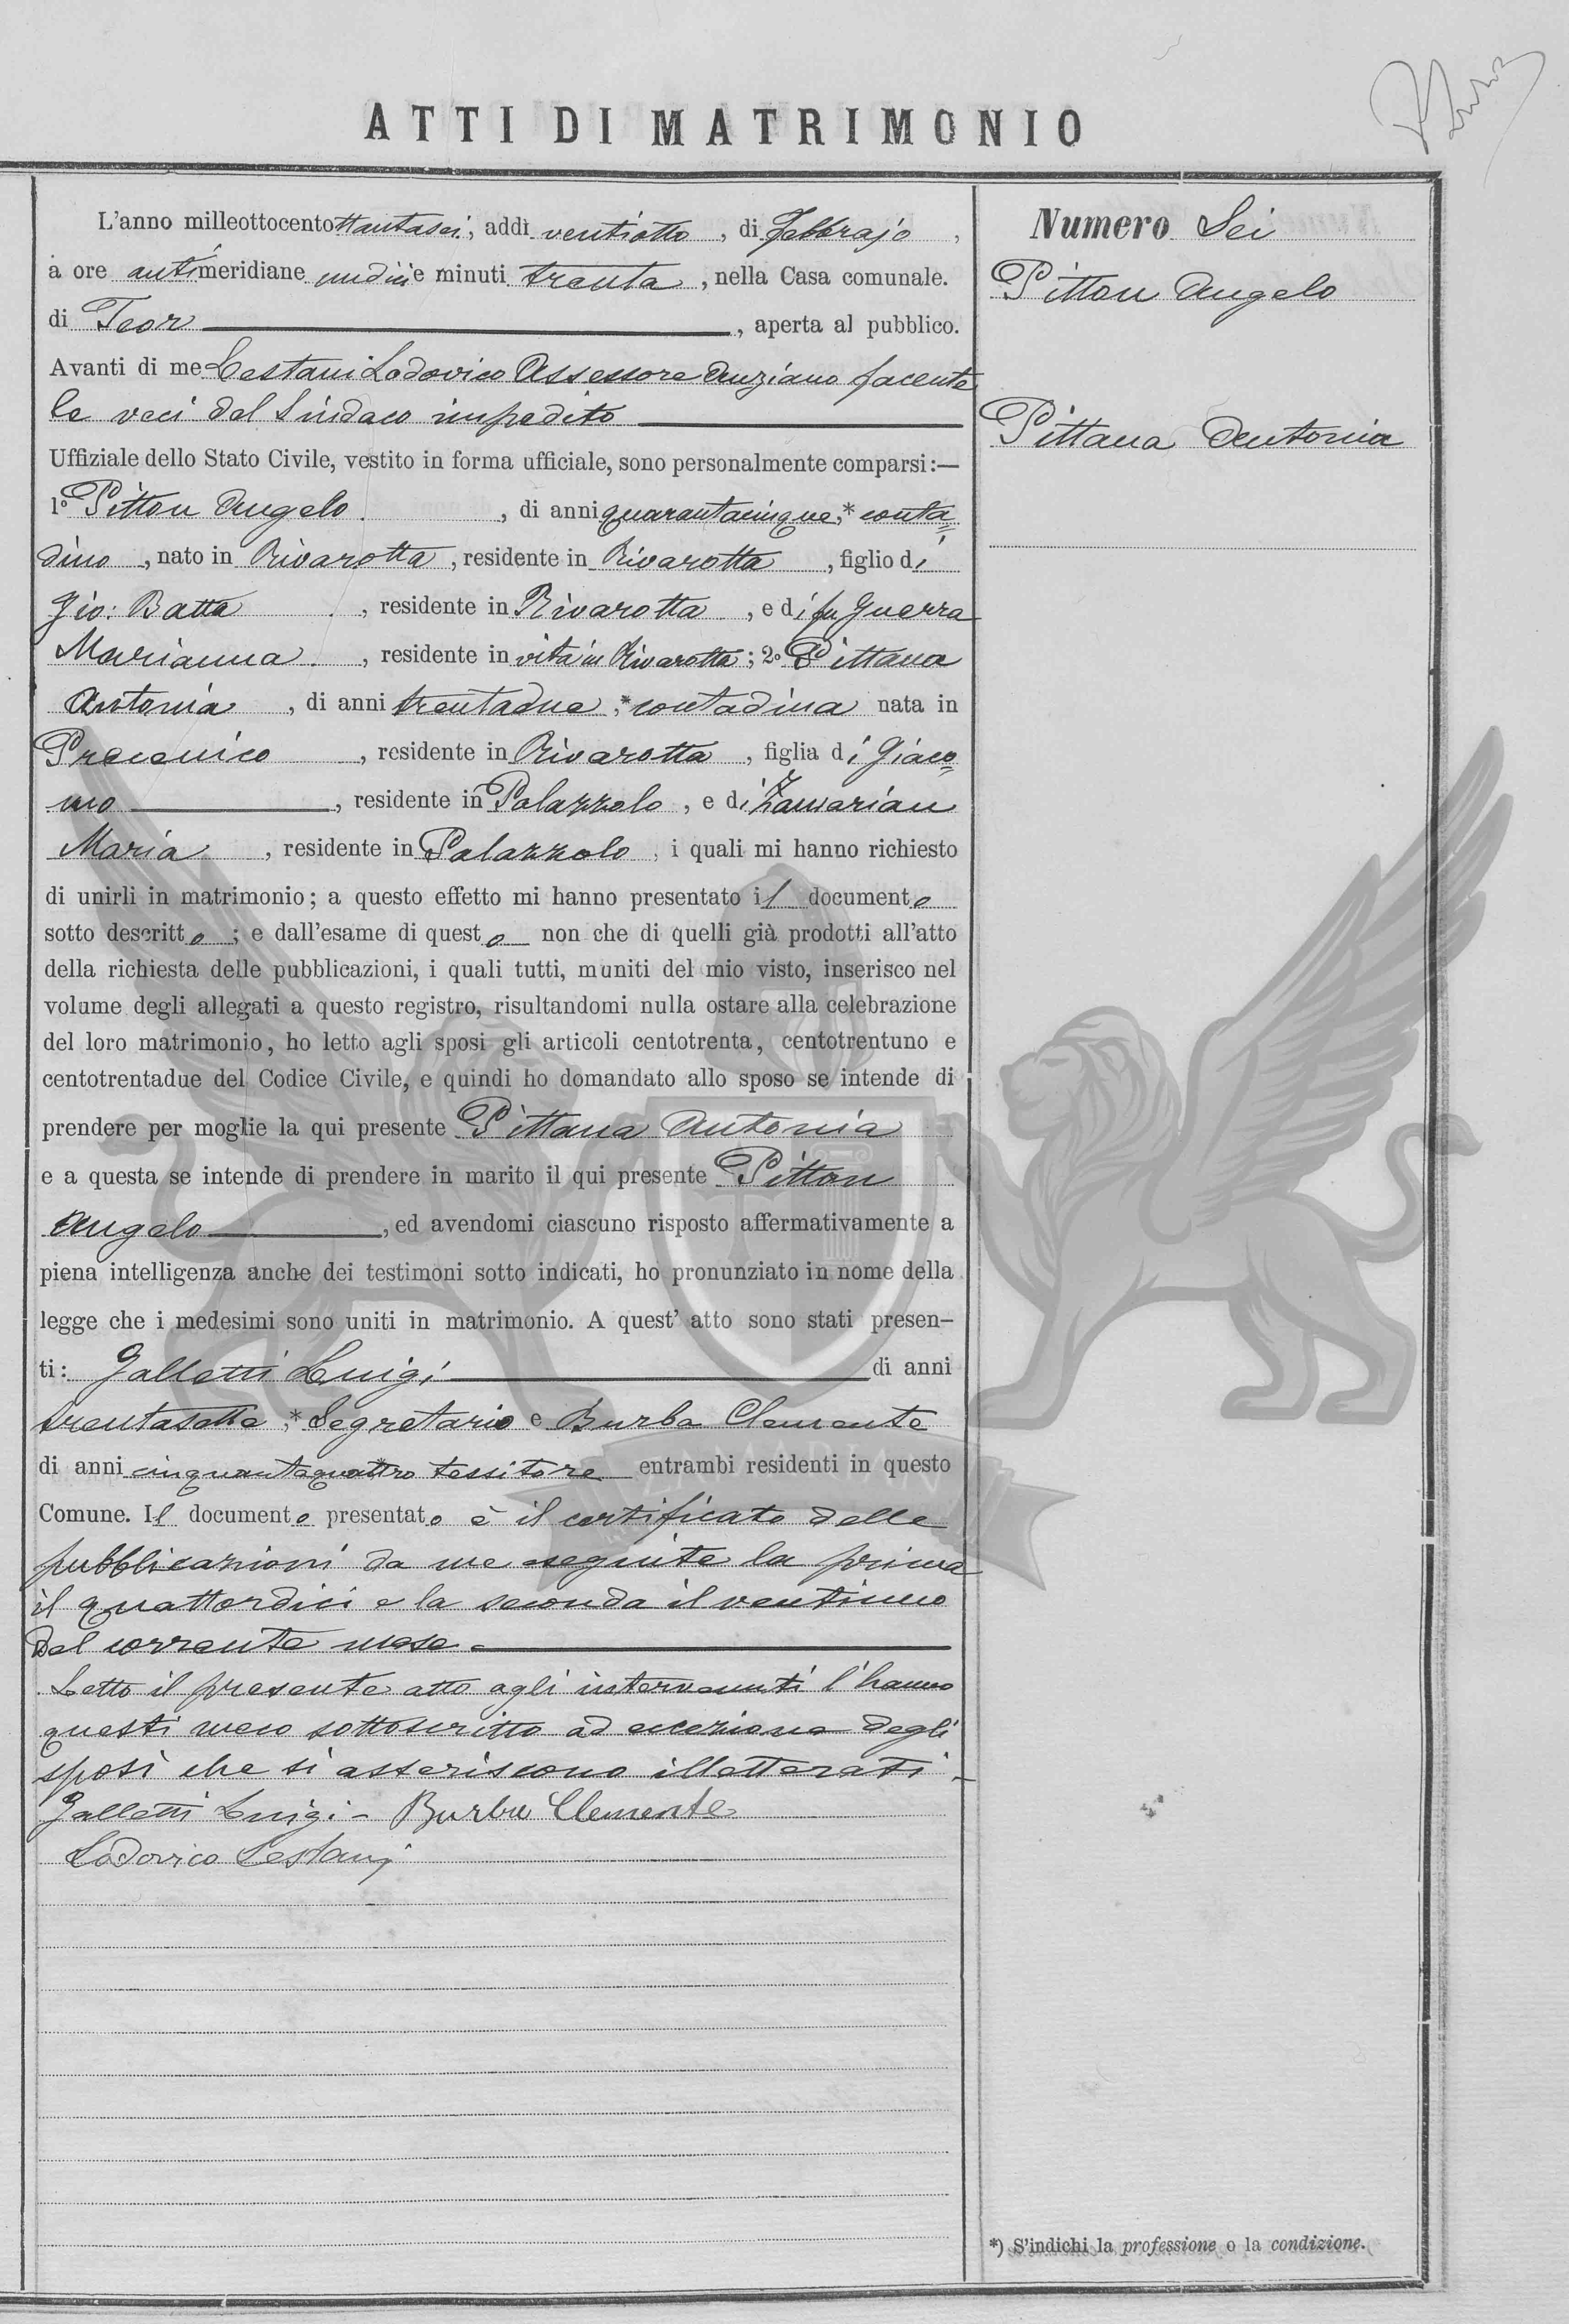 ATTI DI MATRIMONIO
L'anno milleottocentottantasei, addì ventiotto, di Febbrajo,
a ore antimeridiane undici e minuti trenta, nella Casa comunale.
di Teor, aperta al pubblico.
Avanti di me Lestani Lodovico Assessore Anziano facente
le veci del Sindaco impedito
Uffiziale dello Stato Civile, vestito in forma ufficiale, sono personalmente comparsi:—
1º Pitton Angelo, di anni quarantacinque,* conta=
dino, nato in Rivarotta, residente in Rivarotta, figlio di
Gio: Batta, residente in Rivarotta, e di fu Guerra
Marianna, residente in vita in Rivarotta; 2º Pittana
Antonia, di anni trentadue,* contadina nata in
Precenico, residente in Rivarotta, figlia di Giaco=
mo, residente in Palazzolo, e di Zamarian
Maria, residente in Palazzolo, i quali mi hanno richiesto
di unirli in matrimonio; a questo effetto mi hanno presentato il documento
sotto descritto; e dall'esame di questo non che di quelli già prodotti all'atto
della richiesta delle pubblicazioni, i quali tutti, muniti del mio visto, inserisco nel
volume degli allegati a questo registro, risultandomi nulla ostare alla celebrazione
del loro matrimonio, ho letto agli sposi gli articoli centotrenta, centotrentuno e
centotrentadue del Codice Civile, e quindi ho domandato allo sposo se intende di
prendere per moglie la qui presente Pittana Antonia
e a questa se intende di prendere in marito il qui presente Pitton
Angelo, ed avendomi ciascuno risposto affermativamente a
piena intelligenza anche dei testimoni sotto indicati, ho pronunziato in nome della
legge che i medesimi sono uniti in matrimonio. A quest' atto sono stati presen-
ti: Galletti Luigi di anni
trentasette,* Segretario e Burba Clemente
di anni cinquantaquattro* tessitore entrambi residenti in questo
Comune. Il documento presentato è il certificato delle
pubblicazioni da me eseguite la prima
il quattordici e la seconda il ventuno
del corrente mese.
Letto il presente atto agli intervenuti l'hanno
questi meco sottoscritto ad eccezione degli
sposi che si asseriscono illetterati.
Galletti Luigi - Burba Clemente
Lodovico Lestani
Numero Sei
Pitton Angelo
Pittana Antonia
*) S'indichi la professione o la condizione.